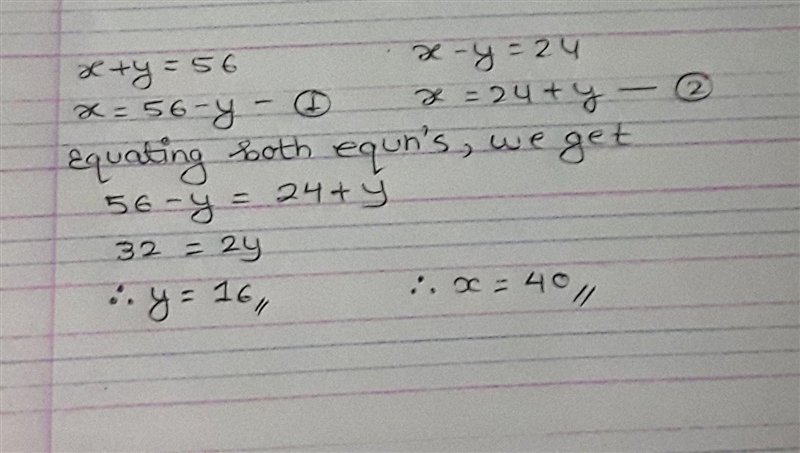 x+y=56 x-y=24
x=56-y - ① x=24+y — ②
Equating both equn's, we get
56-y = 24+y
32 = 2y
∴ y = 16,, ∴ x = 40,,